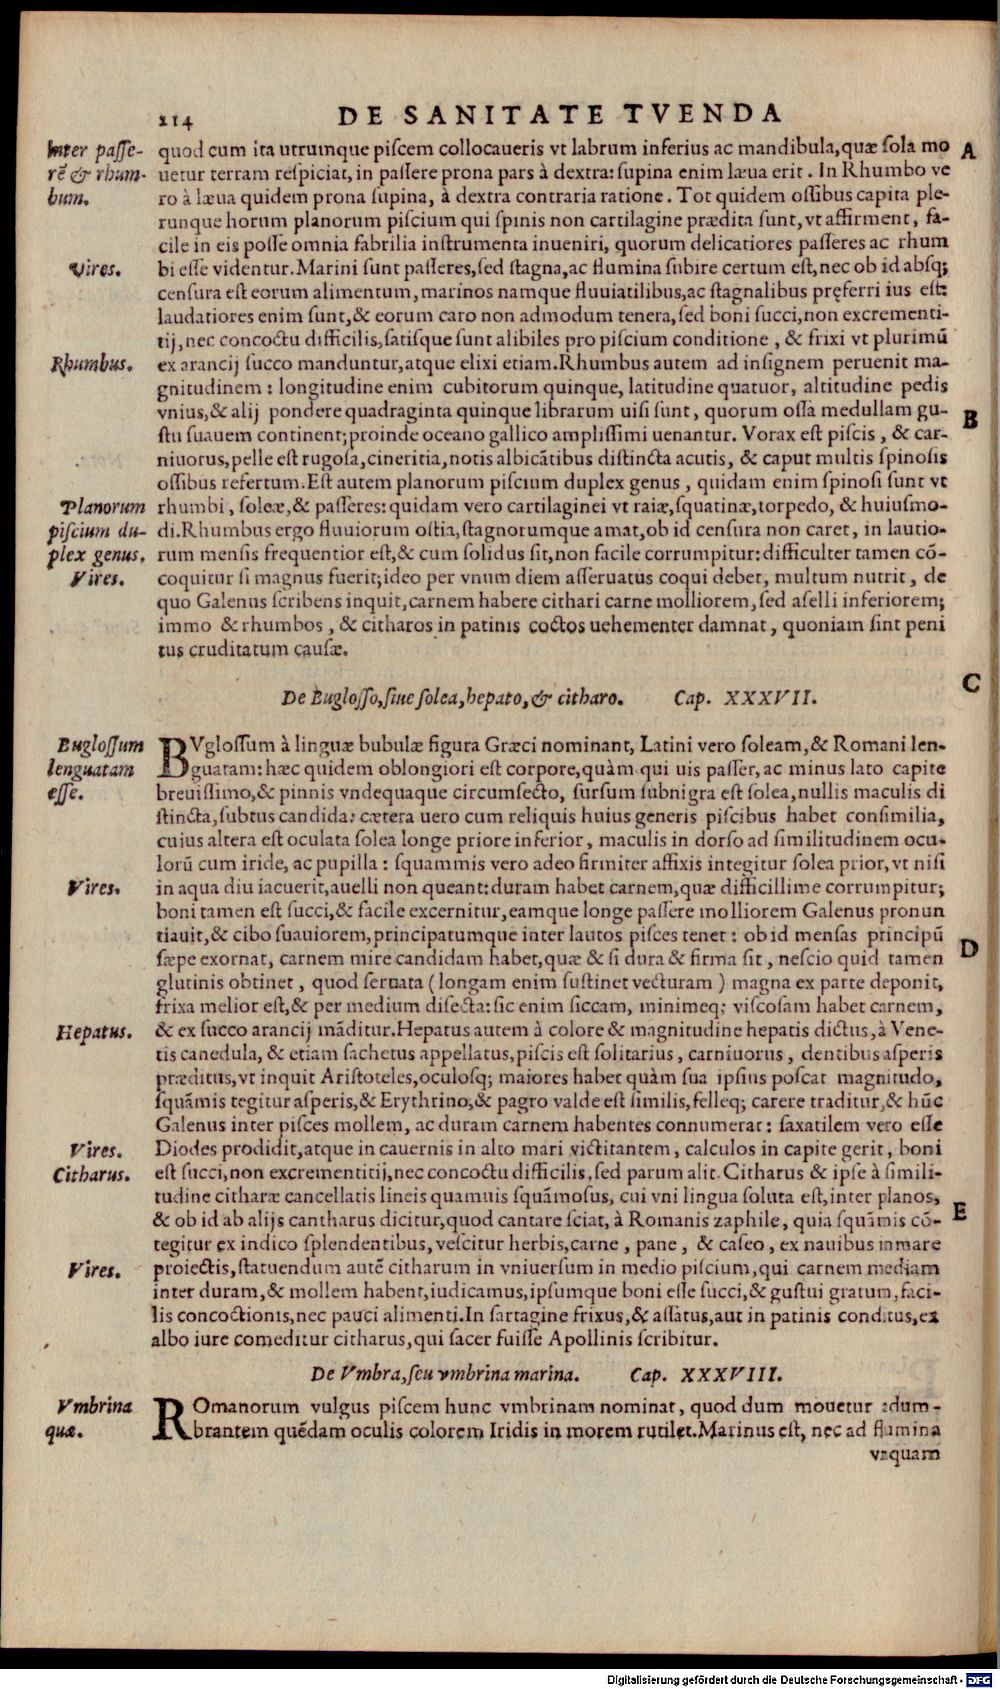 214 DE SANITATE TVENDA
Inter passe-
rē & rhum-
bum.
quod cum ita utrumque piscem collocaueris vt labrum inferius ac mandibula, quæ sola mo
uetur terram respiciat, in passere prona pars à dextra: supina enim læua erit. In Rhumbo ve
ro à læua quidem prona supina, à dextra contraria ratione. Tot quidem ossibus capita ple-
runque horum planorum piscium qui spinis non cartilagine prædita sunt, vt affirment, fa-
cile in eis posse omnia fabrilia instrumenta inueniri, quorum delicatiores passeres ac rhum
Vires.
bi esse videntur. Marini sunt passeres, sed stagna, ac flumina subire certum est, nec ob id absq;
censura est eorum alimentum, marinos namque fluuiatilibus, ac stagnalibus pręferri ius est:
laudatiores enim sunt, & eorum caro non admodum tenera, sed boni succi, non excrementi-
tij, nec concoctu difficilis, satisque sunt alibiles pro piscium conditione, & frixi vt plurimū
Rhumbus.
ex arancij succo manduntur, atque elixi etiam. Rhumbus autem ad insignem peruenit ma-
gnitudinem: longitudine enim cubitorum quinque, latitudine quatuor, altitudine pedis
vnius, & alij pondere quadraginta quinque librarum uisi sunt, quorum ossa medullam gu-
stu suauem continent; proinde oceano gallico amplissimi uenantur. Vorax est piscis, & car-
niuorus, pelle est rugosa, cineritia, notis albicātibus distincta acutis, & caput multis spinosis
ossibus refertum. Est autem planorum piscium duplex genus, quidam enim spinosi sunt vt
Planorum
piscium du-
plex genus.
rhumbi, soleæ, & passeres: quidam vero cartilaginei vt raiæ, squatinæ, torpedo, & huiusmo-
di. Rhumbus ergo fluuiorum ostia, stagnorumque amat, ob id censura non caret, in lautio-
rum mensis frequentior est, & cum solidus sit, non facile corrumpitur: difficulter tamen cō-
Vires.
coquitur si magnus fuerit; ideo per vnum diem asseruatus coqui debet, multum nutrit, de
quo Galenus scribens inquit, carnem habere cithari carne molliorem, sed aselli inferiorem;
immo & rhumbos, & citharos in patinis coctos uehementer damnat, quoniam sint peni
tus cruditatum causæ.
A
B
C
De Buglosso, siue solea, hepato, & citharo. Cap. XXXVII.
Buglossum
lenguatam
esse.
BVglossum à linguæ bubulæ figura Græci nominant, Latini vero soleam, & Romani len-
guatam: hæc quidem oblongiori est corpore, quàm qui uis passer, ac minus lato capite
breuissimo, & pinnis vndequaque circumsecto, sursum subnigra est solea, nullis maculis di
stincta, subtus candida: cætera uero cum reliquis huius generis piscibus habet consimilia,
cuius altera est oculata solea longe priore inferior, maculis in dorso ad similitudinem ocu-
lorū cum iride, ac pupilla: squammis vero adeo firmiter affixis integitur solea prior, vt nisi
Vires.
in aqua diu iacuerit, auelli non queant: duram habet carnem, quæ difficillime corrumpitur;
boni tamen est succi, & facile excernitur, eamque longe passere molliorem Galenus pronun
tiauit, & cibo suauiorem, principatumque inter lautos pisces tenet: ob id mensas principū
D
sæpe exornat, carnem mire candidam habet, quæ & si dura & firma sit, nescio quid tamen
glutinis obtinet, quod seruata (longam enim sustinet vecturam) magna ex parte deponit,
frixa melior est, & per medium disecta: sic enim siccam, minimeq; viscosam habet carnem,
Hepatus.
& ex succo arancij māditur. Hepatus autem à colore & magnitudine hepatis dictus, à Vene-
tis canedula, & etiam sachetus appellatus, piscis est solitarius, carniuorus, dentibus asperis
præditus, vt inquit Aristoteles, oculosq; maiores habet quàm sua ipsius poscat magnitudo,
squāmis tegitur asperis, & Erythrino, & pagro valde est similis, felleq; carere traditur, & hūc
Galenus inter pisces mollem, ac duram carnem habentes connumerat: saxatilem vero esse
Vires.
Diodes prodidit, atque in cauernis in alto mari victitantem, calculos in capite gerit, boni
Citharus.
est succi, non excrementitij, nec concoctu difficilis, sed parum alit. Citharus & ipse à simili-
tudine citharæ cancellatis lineis quamuis squāmosus, cui vni lingua soluta est, inter planos,
E
& ob id ab alijs cantharus dicitur, quod cantare sciat, à Romanis zaphile, quia squāmis cō-
tegitur ex indico splendentibus, vescitur herbis, carne, pane, & caseo, ex nauibus in mare
Vires.
proiectis, statuendum autē citharum in vniuersum in medio piscium, qui carnem mediam
inter duram, & mollem habent, iudicamus, ipsumque boni esse succi, & gustui gratum, faci-
lis concoctionis, nec pauci alimenti. In sartagine frixus, & assatus, aut in patinis conditus, ex
albo iure comeditur citharus, qui sacer fuisse Apollinis scribitur.
De Vmbra, seu vmbrina marina. Cap. XXXVIII.
Vmbrina
quæ.
ROmanorum vulgus piscem hunc vmbrinam nominat, quod dum mouetur adum-
brantem quēdam oculis colorem Iridis in morem rutilet. Marinus est, nec ad flumina
vnquam
Digitalisierung gefördert durch die Deutsche Forschungsgemeinschaft - DFG